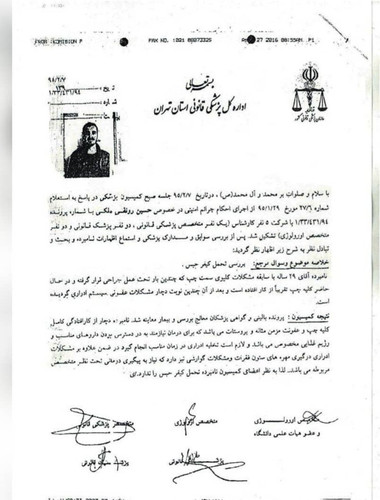 FROM :COMMISION P
FAX NO. :021 88873325
27 2016 08:55AM P1
بسمه تعالی
اداره کل پزشکی قانونی استان تهران
۹۵/۲/۷
۱/۳۳/۴۳۱/۹۴
با سلام و صلوات بر محمد و آل محمد(ص) ، درتاریخ ۹۵/۲/۷ جلسه صبح کمیسیون پزشکی در پاسخ به استعلام
شماره ۲۷/ مورخ ۹۵/۱/۲۹ از اجرای احکام جرائم امنیتی در خصوص حسین رونقی ملکی با شماره پرونده
۱/۳۳/۴۳۱/۹۴ با شرکت ۵ نفر کارشناس (یک نفر متخصص پزشکی قانونی ، دو نفر پزشک قانونی و دو نفر
متخصص اورولوژی) تشکیل شد. پس از بررسی سوابق و مدارک پزشکی و استماع اظهارات نامبرده و بحث و
تبادل نظر به شرح زیر اظهار نظر گردید:
خلاصه موضوع وسوال مرجع: بررسی تحمل کیفر حبس .
نامبرده آقای ۲۹ ساله با سابقه مشکلات کلیوی سمت چپ که چندین بار تحت عمل جراحی قرار گرفته و در حال
حاضر کلیه چپ تقریباً از کار افتاده است و بعد از آن چندین نوبت دچار مشکلات عفونی سیستم ادراری گردیده
است.
نتیجه کمیسیون: پرونده بالینی و گواهی پزشکان معالج بررسی و بیمار معاینه شد. نامبرده دچار از کارافتادگی کامل
کلیه چپ و عفونت مزمن مثانه و پروستات می باشد که برای درمان نیازمند به در دسترس بودن داروهای مناسب و
رژیم غذایی مخصوص می باشد و لازم است تخلیه ادراری در زمان مناسب انجام گیرد در ضمن علاوه بر مشکلات
ادراری درگیری مهره های ستون فقرات ومشکلات گوارشی نیز دارد که نیاز به پیگیری درمانی تحت نظر متخصص
مربوطه می باشد. لذا به نظر اعضای کمیسیون نامبرده تحمل کیفر حبس را ندارد.
متخصص اورولوژی
و عضو هیات علمی دانشگاه
متخصص اورولوژی
متخصص پزشکی قانونی
پزشک قانونی
پزشک قانونی